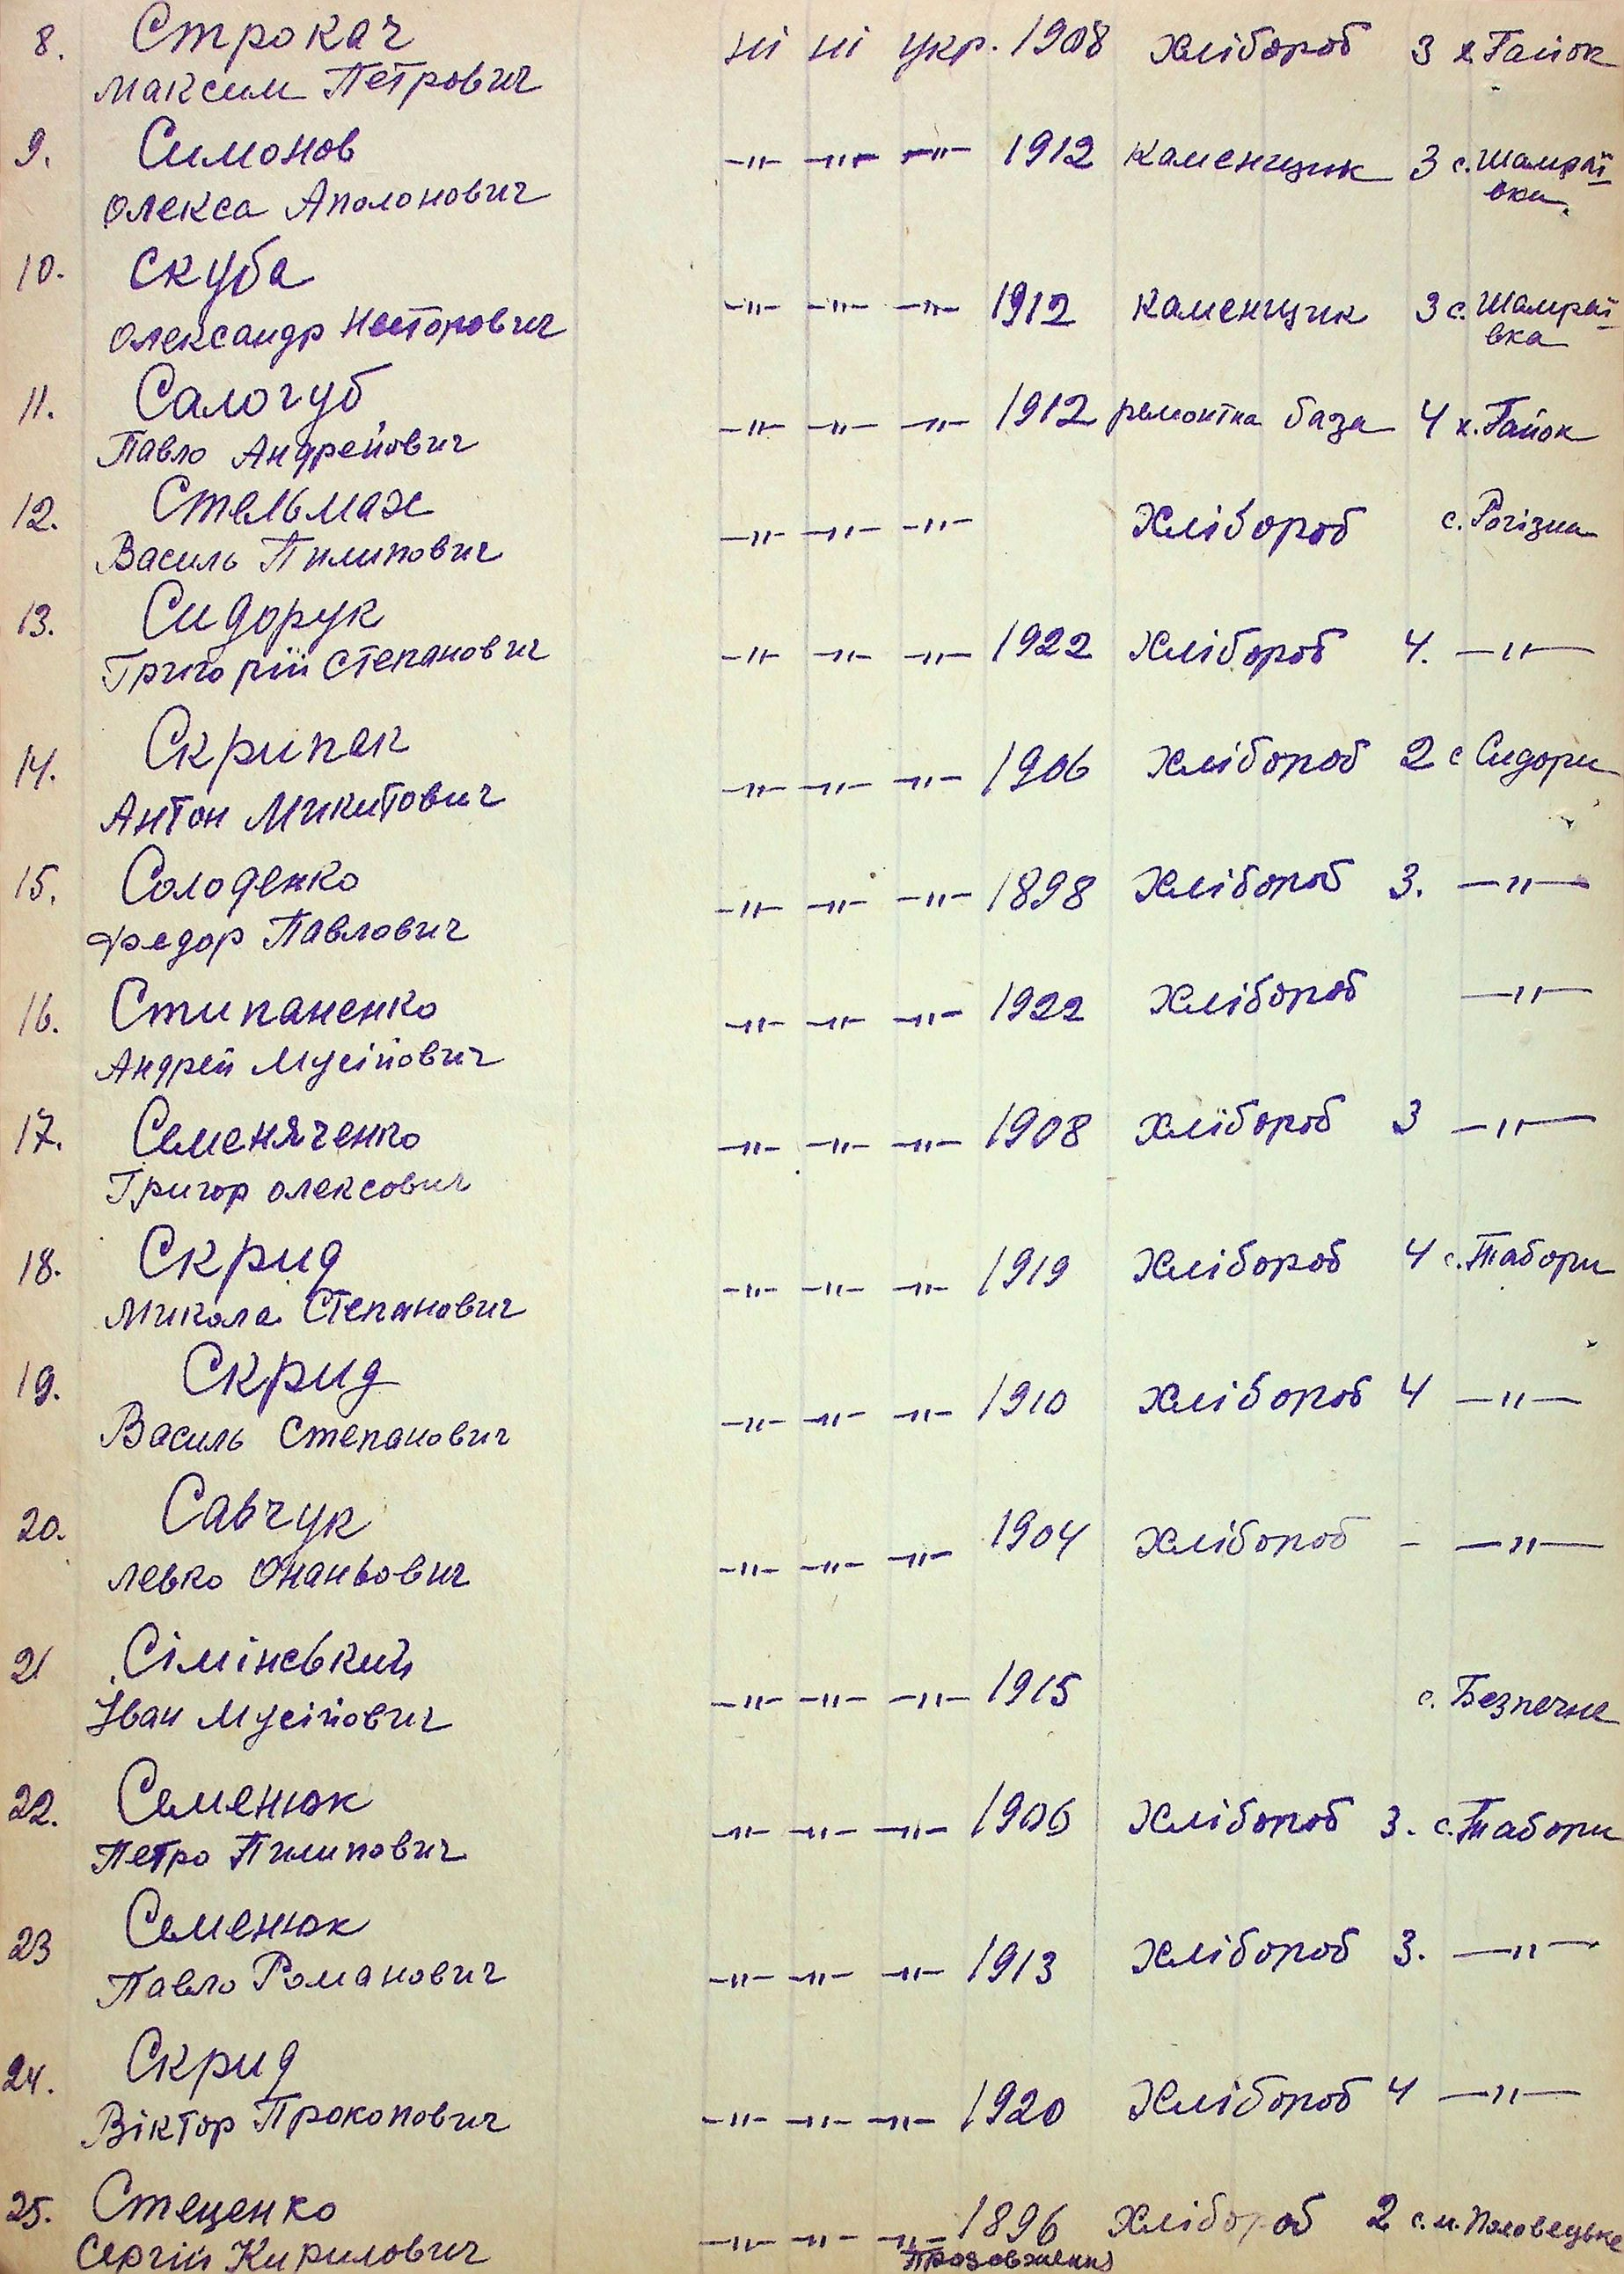 8. Строкач ні ні укр. 1908 Хлібороб 3 х. Гайок
Максим Петрович
9. Симонов —"— —"— —"— 1912 Каменщик 3 с. Шамраї
Олекса Аполонович вка
10. Скуба
Олександр Несторович —"— —"— —"— 1912 Каменщик 3 с. Шамраї
вка
11. Салогуб —"— —"— —"— 1912 ремонтна база 4 х. Гайок
Павло Андрейович
12. Стельмах —"— —"— —"— Хлібороб с. Рогізна
Василь Пилипович
13. Сидорук
Григорій Степанович —"— —"— —"— 1922 Хлібороб 4. —"—
14. Скрипак —"— —"— —"— 1906 Хлібороб 2 с Сидори
Антон Микитович
15. Солоденко —"— —"— —"— 1898 Хлібороб 3. —"—
Федор Павлович
16. Стипаненко —"— —"— —"— 1922 Хлібороб —"—
Андрей Мусійович
17. Семеняченко —"— —"— —"— 1908 Хлібороб 3 —"—
Григор Олексович
18. Скрид —"— —"— —"— 1919 Хлібороб 4 с. Табори
Микола Степанович
19. Скрид —"— —"— —"— 1910 Хлібороб 4 —"—
Василь Степанович
20. Савчук —"— —"— —"— 1904 Хлібороб - —"—
Левко Онаньович
21 Сімінський —"— —"— —"— 1915 с. Безпечне
Іван Мусійович
22. Семенюк —"— —"— —"— 1906 Хлібороб 3. с. Табори
Петро Пилипович
23 Семенюк —"— —"— —"— 1913 Хлібороб 3. —"—
Павло Романович
24. Скрид —"— —"— —"— 1920 Хлібороб 4 —"—
Віктор Прокопович
25. Стеценко —"— —"— —"— 1896 Хлібороб 2 с. м. Половецьке
Сергій Кирилович
Продовження